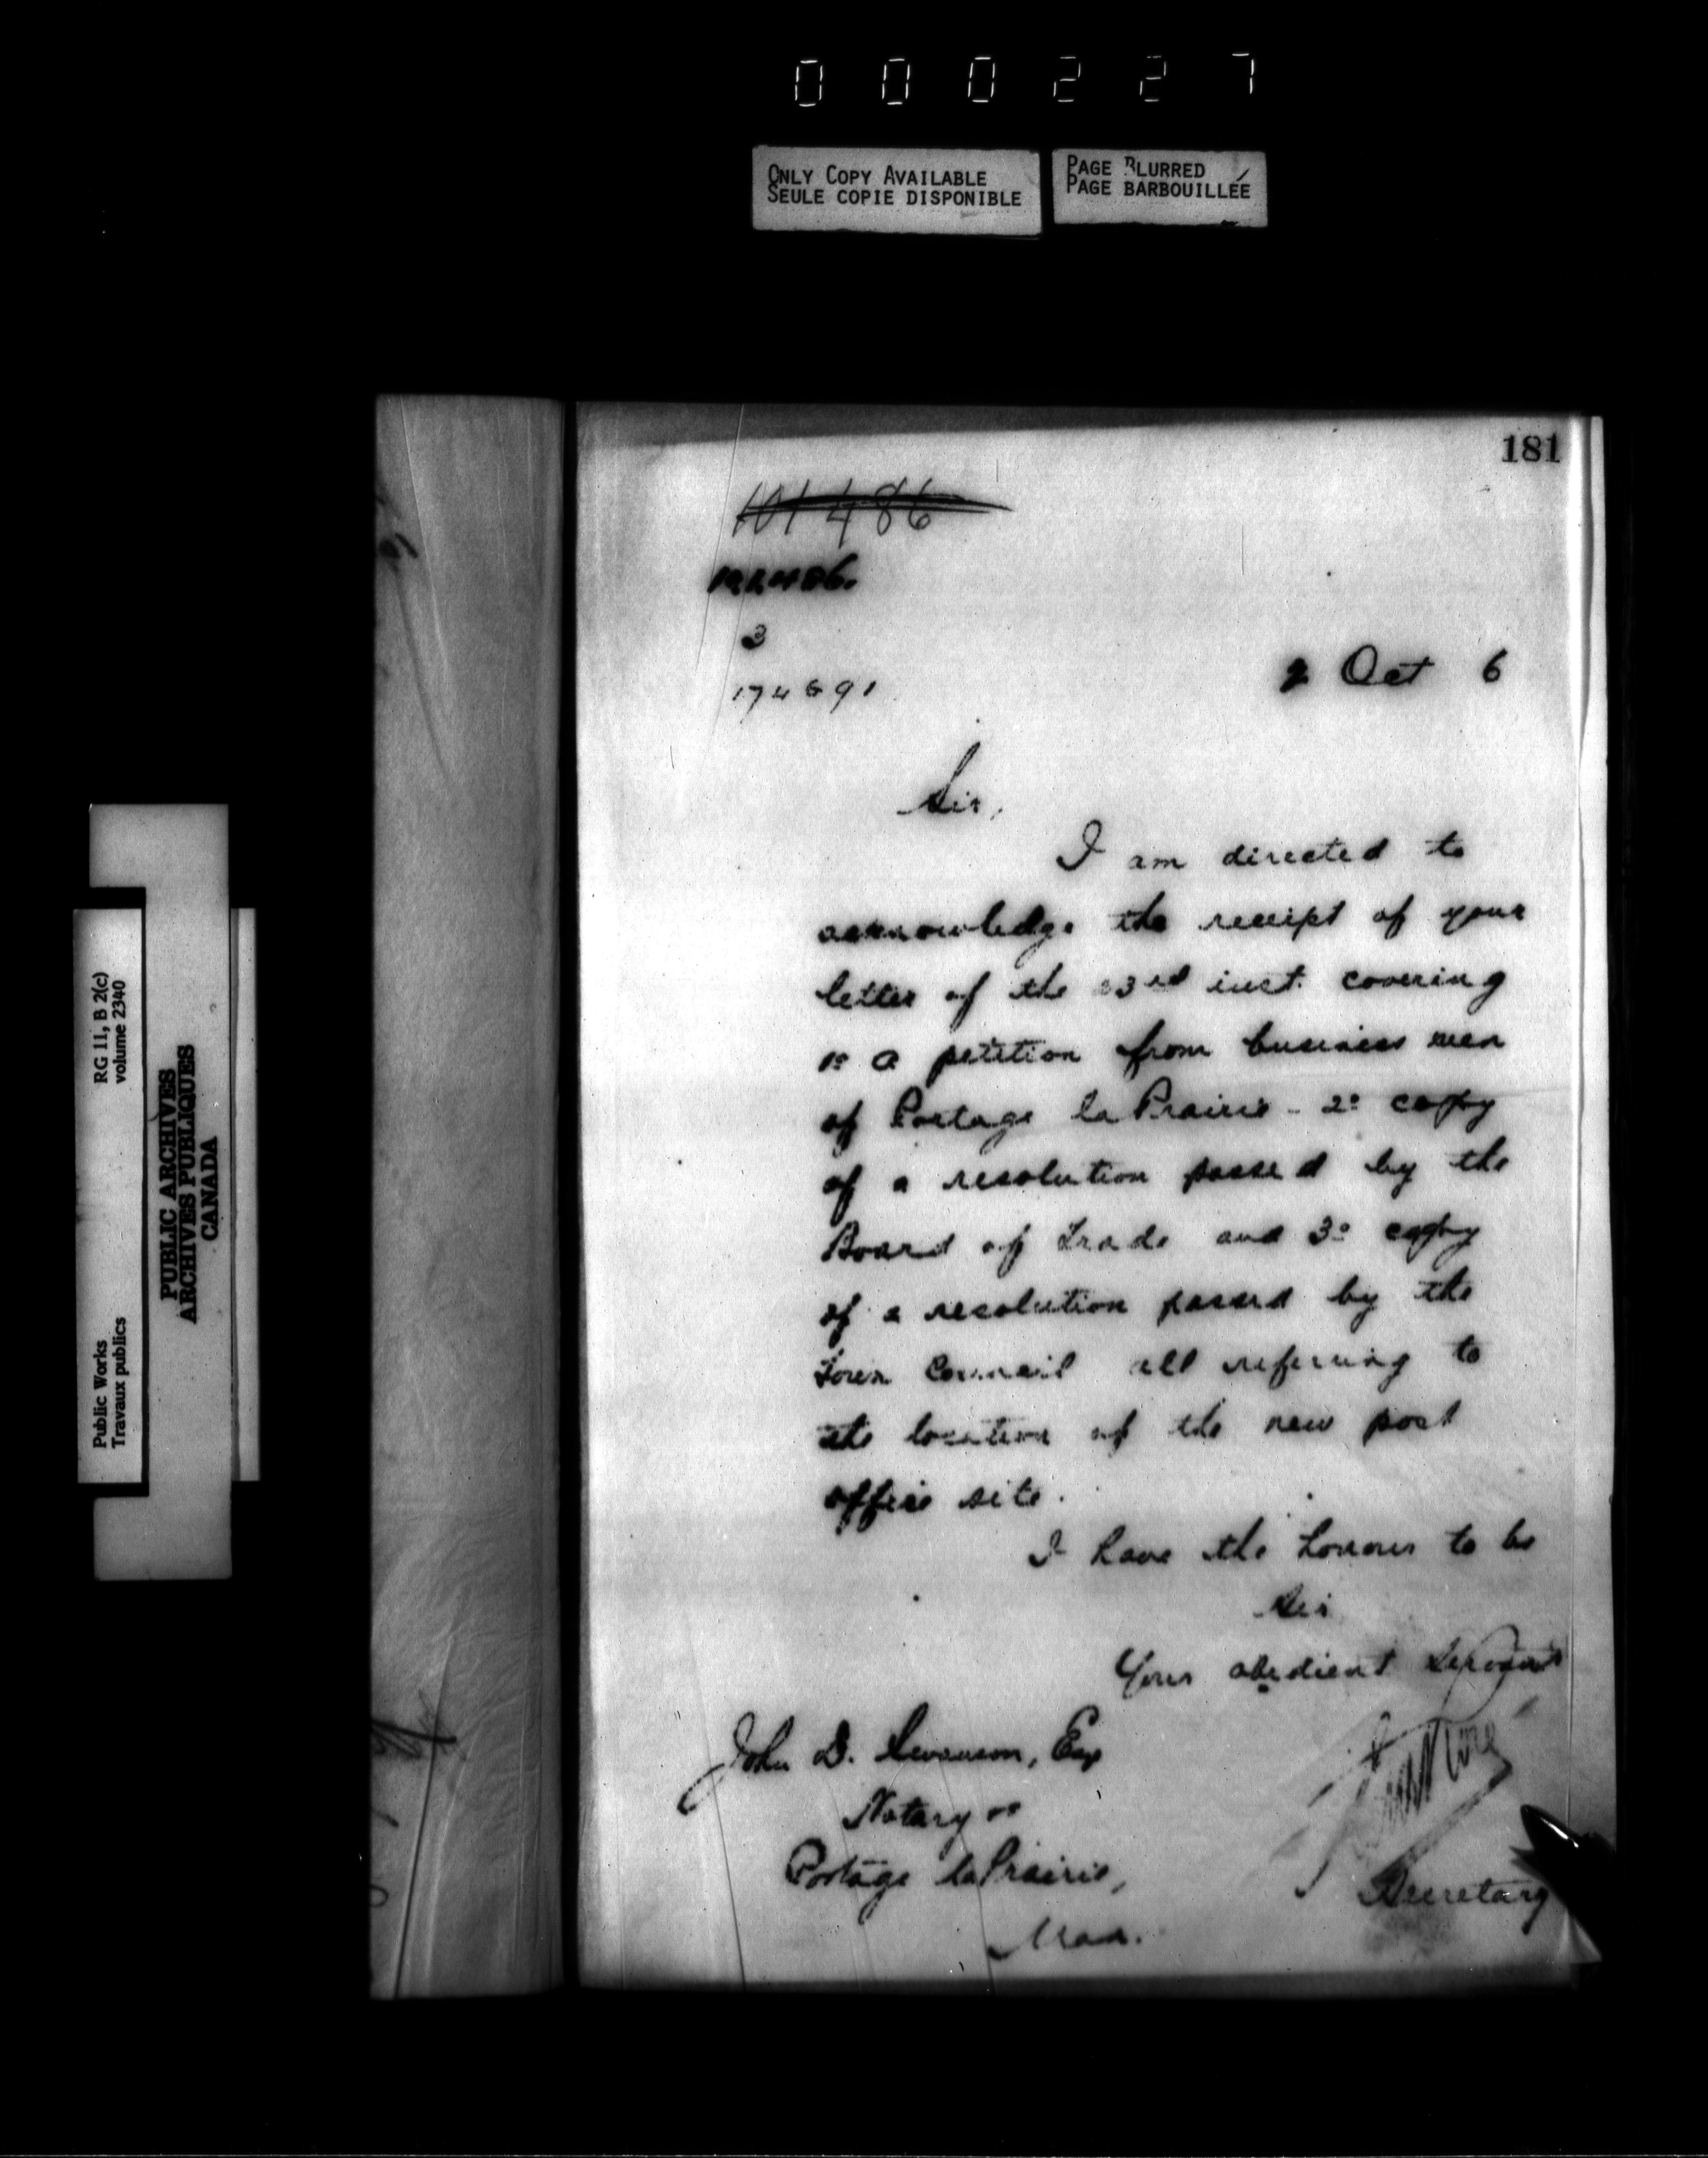 000227
ONLY COPY AVAILABLE
SEULE COPIE DISPONIBLE
PAGE BLURRED
PAGE BARBOUILLÉE
181
101486
3
174691
2 Oct 6
Sir,
I am directed to
acknowledge the receipt of your
letter of the 23rd inst. covering
1º a petition from business men
of Portage la Prairie - 2º copy
of a resolution passed by the
Board of Trade and 3º copy
of a resolution passed by the
Town Council all referring to
the location of the new post
office site.
I have the honour to be
Sir
Your obedient Servant
Secretary
John D. Swanson, Esq
Notary
Portage la Prairie,
Man.
RG 11, B 2(c)
volume 2340
Public Works
Travaux publics
PUBLIC ARCHIVES
ARCHIVES PUBLIQUES
CANADA